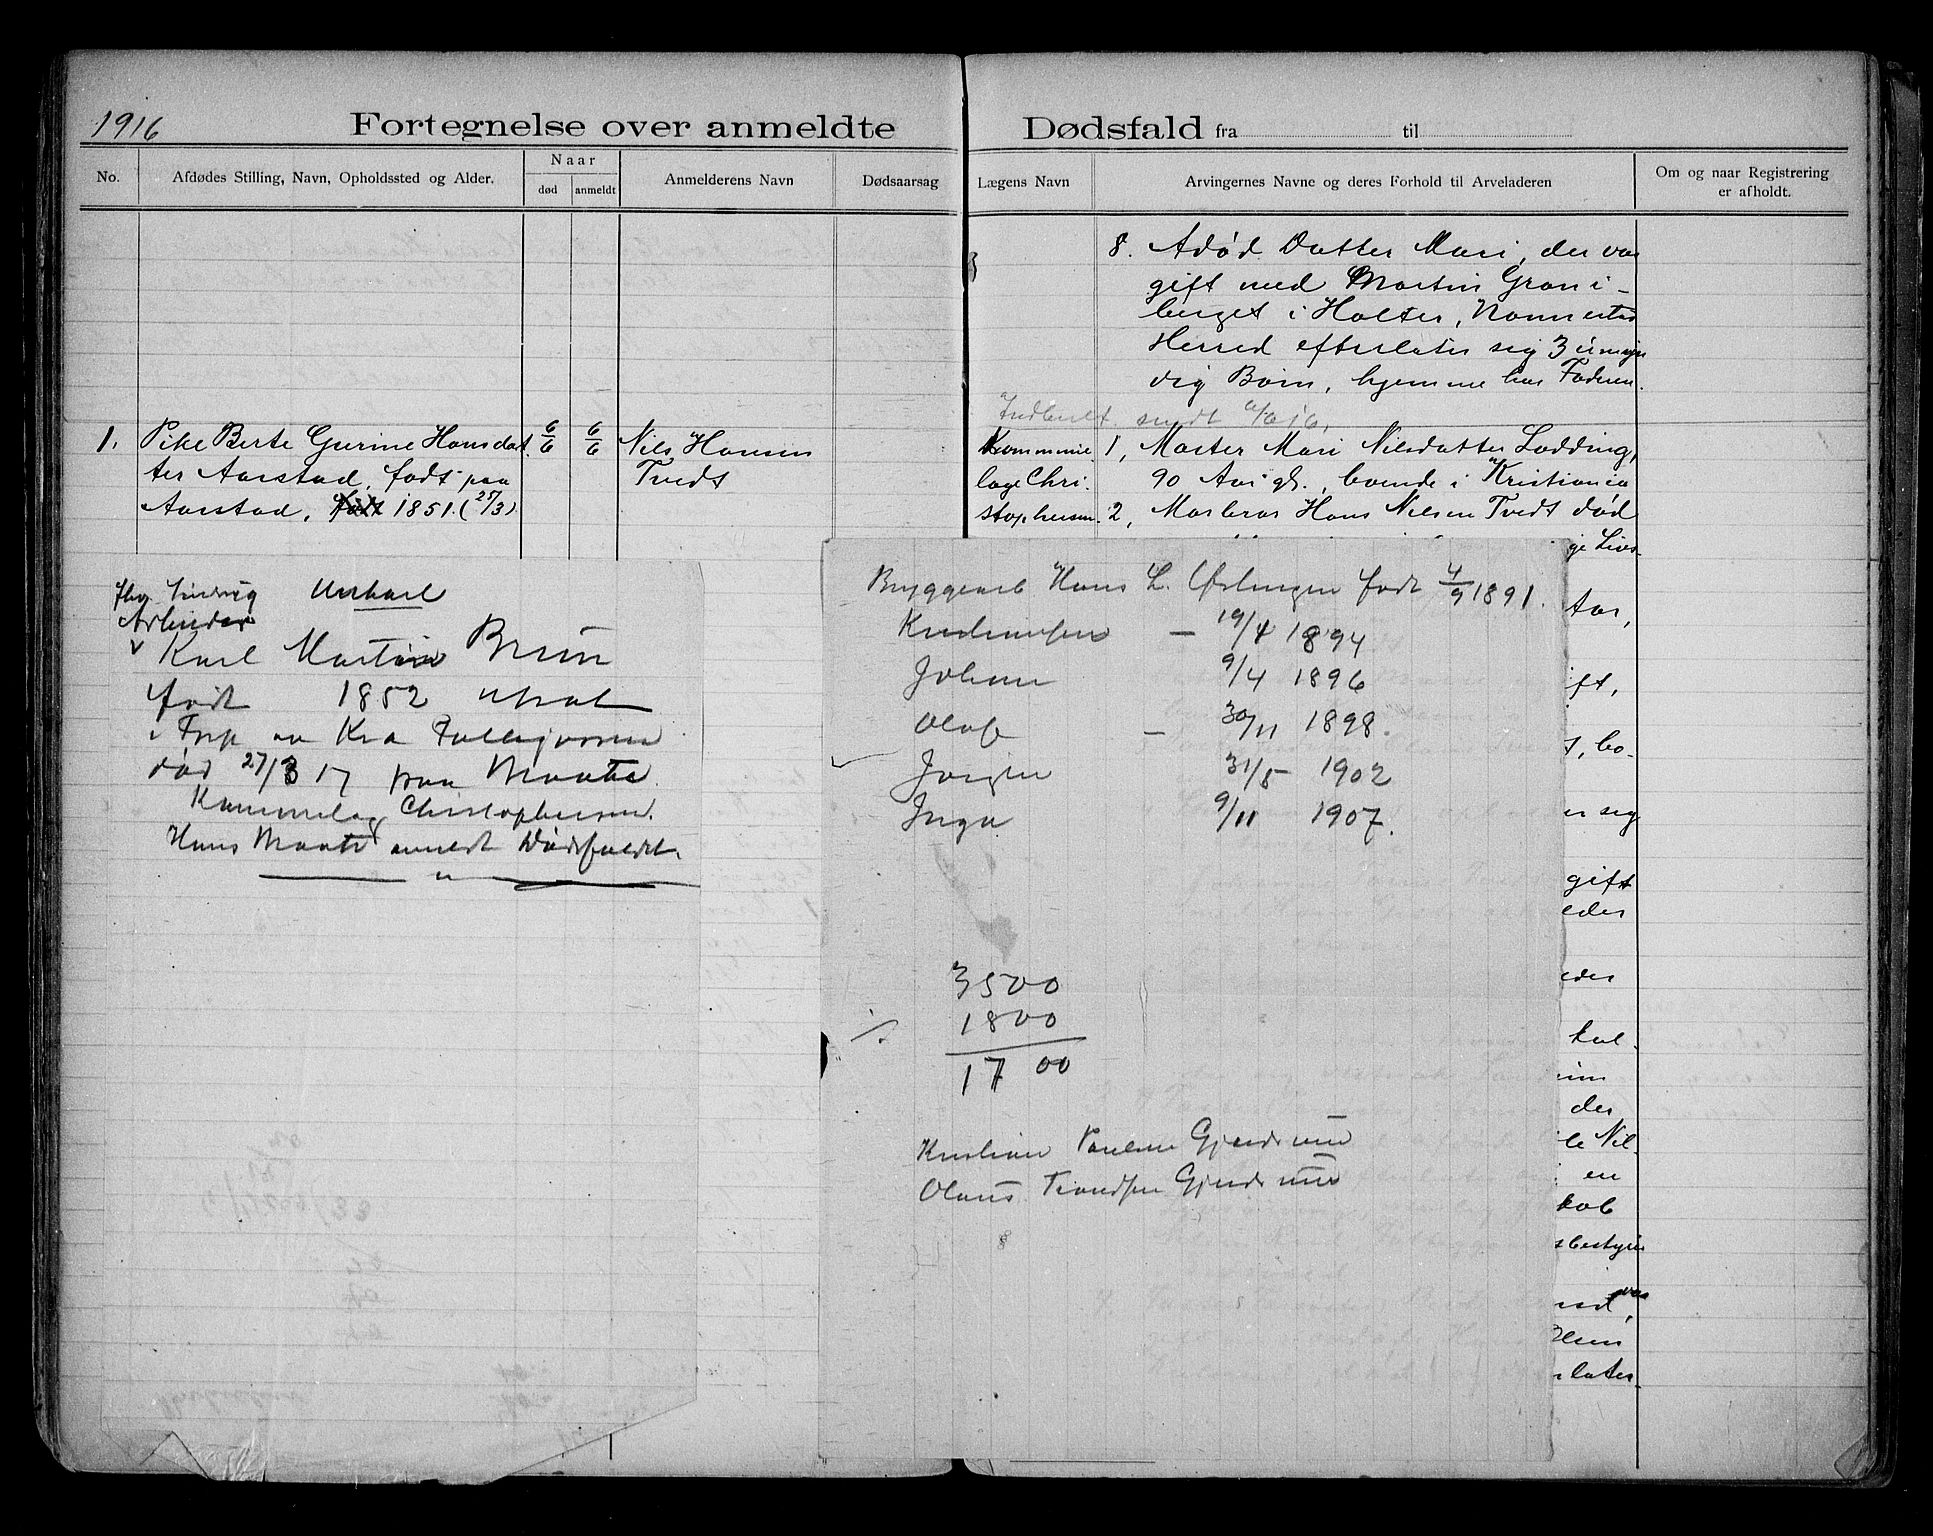 1916
Fortegnelse over anmeldte Dødsfald fra til
No.
Afdødes Stilling, Navn, Opholdssted og Alder.
Naar
død
anmeldt
Anmelderens Navn
Dødsaarsag
Lægens Navn
Arvingernes Navne og deres Forhold til Arveladeren
Om og naar Registrering
er afholdt.
8. Adød Datter Mari, der var
gift med Martin Grani-
berget i Holter, Nannestad
Herred efterlater sig 3 umyn
dig Børn, hjemme hos Faderen.
sendt
1. Pike Berte Gurine Hansdat
ter Aarstad, født paa
Aarstad, født 1851. (25/3)
6/6
6/6
Nils Hansen
Tvedt
Kommune
læge Chri
stophersen.
1, Moster Mari Nilsdatter Lødding,
90 Aar gl., boende i Kristiania
2, Morbror Hans Nilsen Tvedt død
ge Livs-
Aar,
ift,
t, bo-
er sig
gift
edes
edes
kal-
der
le Nil-
en
kob
sbestyrer
paa
Olsen
rlater
Arbeider
Karl Martin Brun
født 1852
død 27/3 17 paa Moate
Kommunelæg Christophersen.
Hans Moate anmeldt Dødsfaldet.
Byggearb Hans L. født 4/9 1891.
Kristiansen — 19/4 1894
Johan 9/4 1896
Olaf — 30/11 1898.
Jørgen 31/5 1902
Inga 9/11 1907.
3500
÷ 1800
1700
Kristian Paulsen Gjerdrum
Olaus Trondsen Gjerdrum